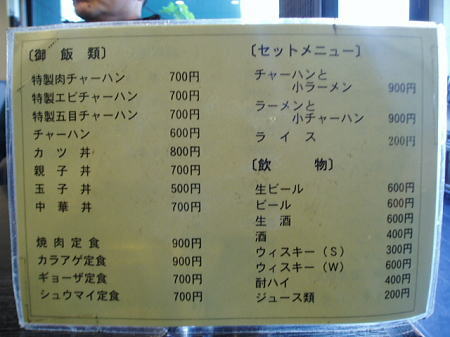 〔御飯類〕
特製肉チャーハン 700円
特製エビチャーハン 700円
特製五目チャーハン 700円
チャーハン 600円
カツ丼 800円
親子丼 700円
玉子丼 500円
中華丼 700円
焼肉定食 900円
カラアゲ定食 900円
ギョーザ定食 700円
シュウマイ定食 700円
〔セットメニュー〕
チャーハンと
小ラーメン 900円
ラーメンと
小チャーハン 900円
ライス 200円
〔飲物〕
生ビール 600円
ビール 600円
生酒 600円
酒 400円
ウィスキー（S） 300円
ウィスキー（W） 600円
酎ハイ 400円
ジュース類 200円